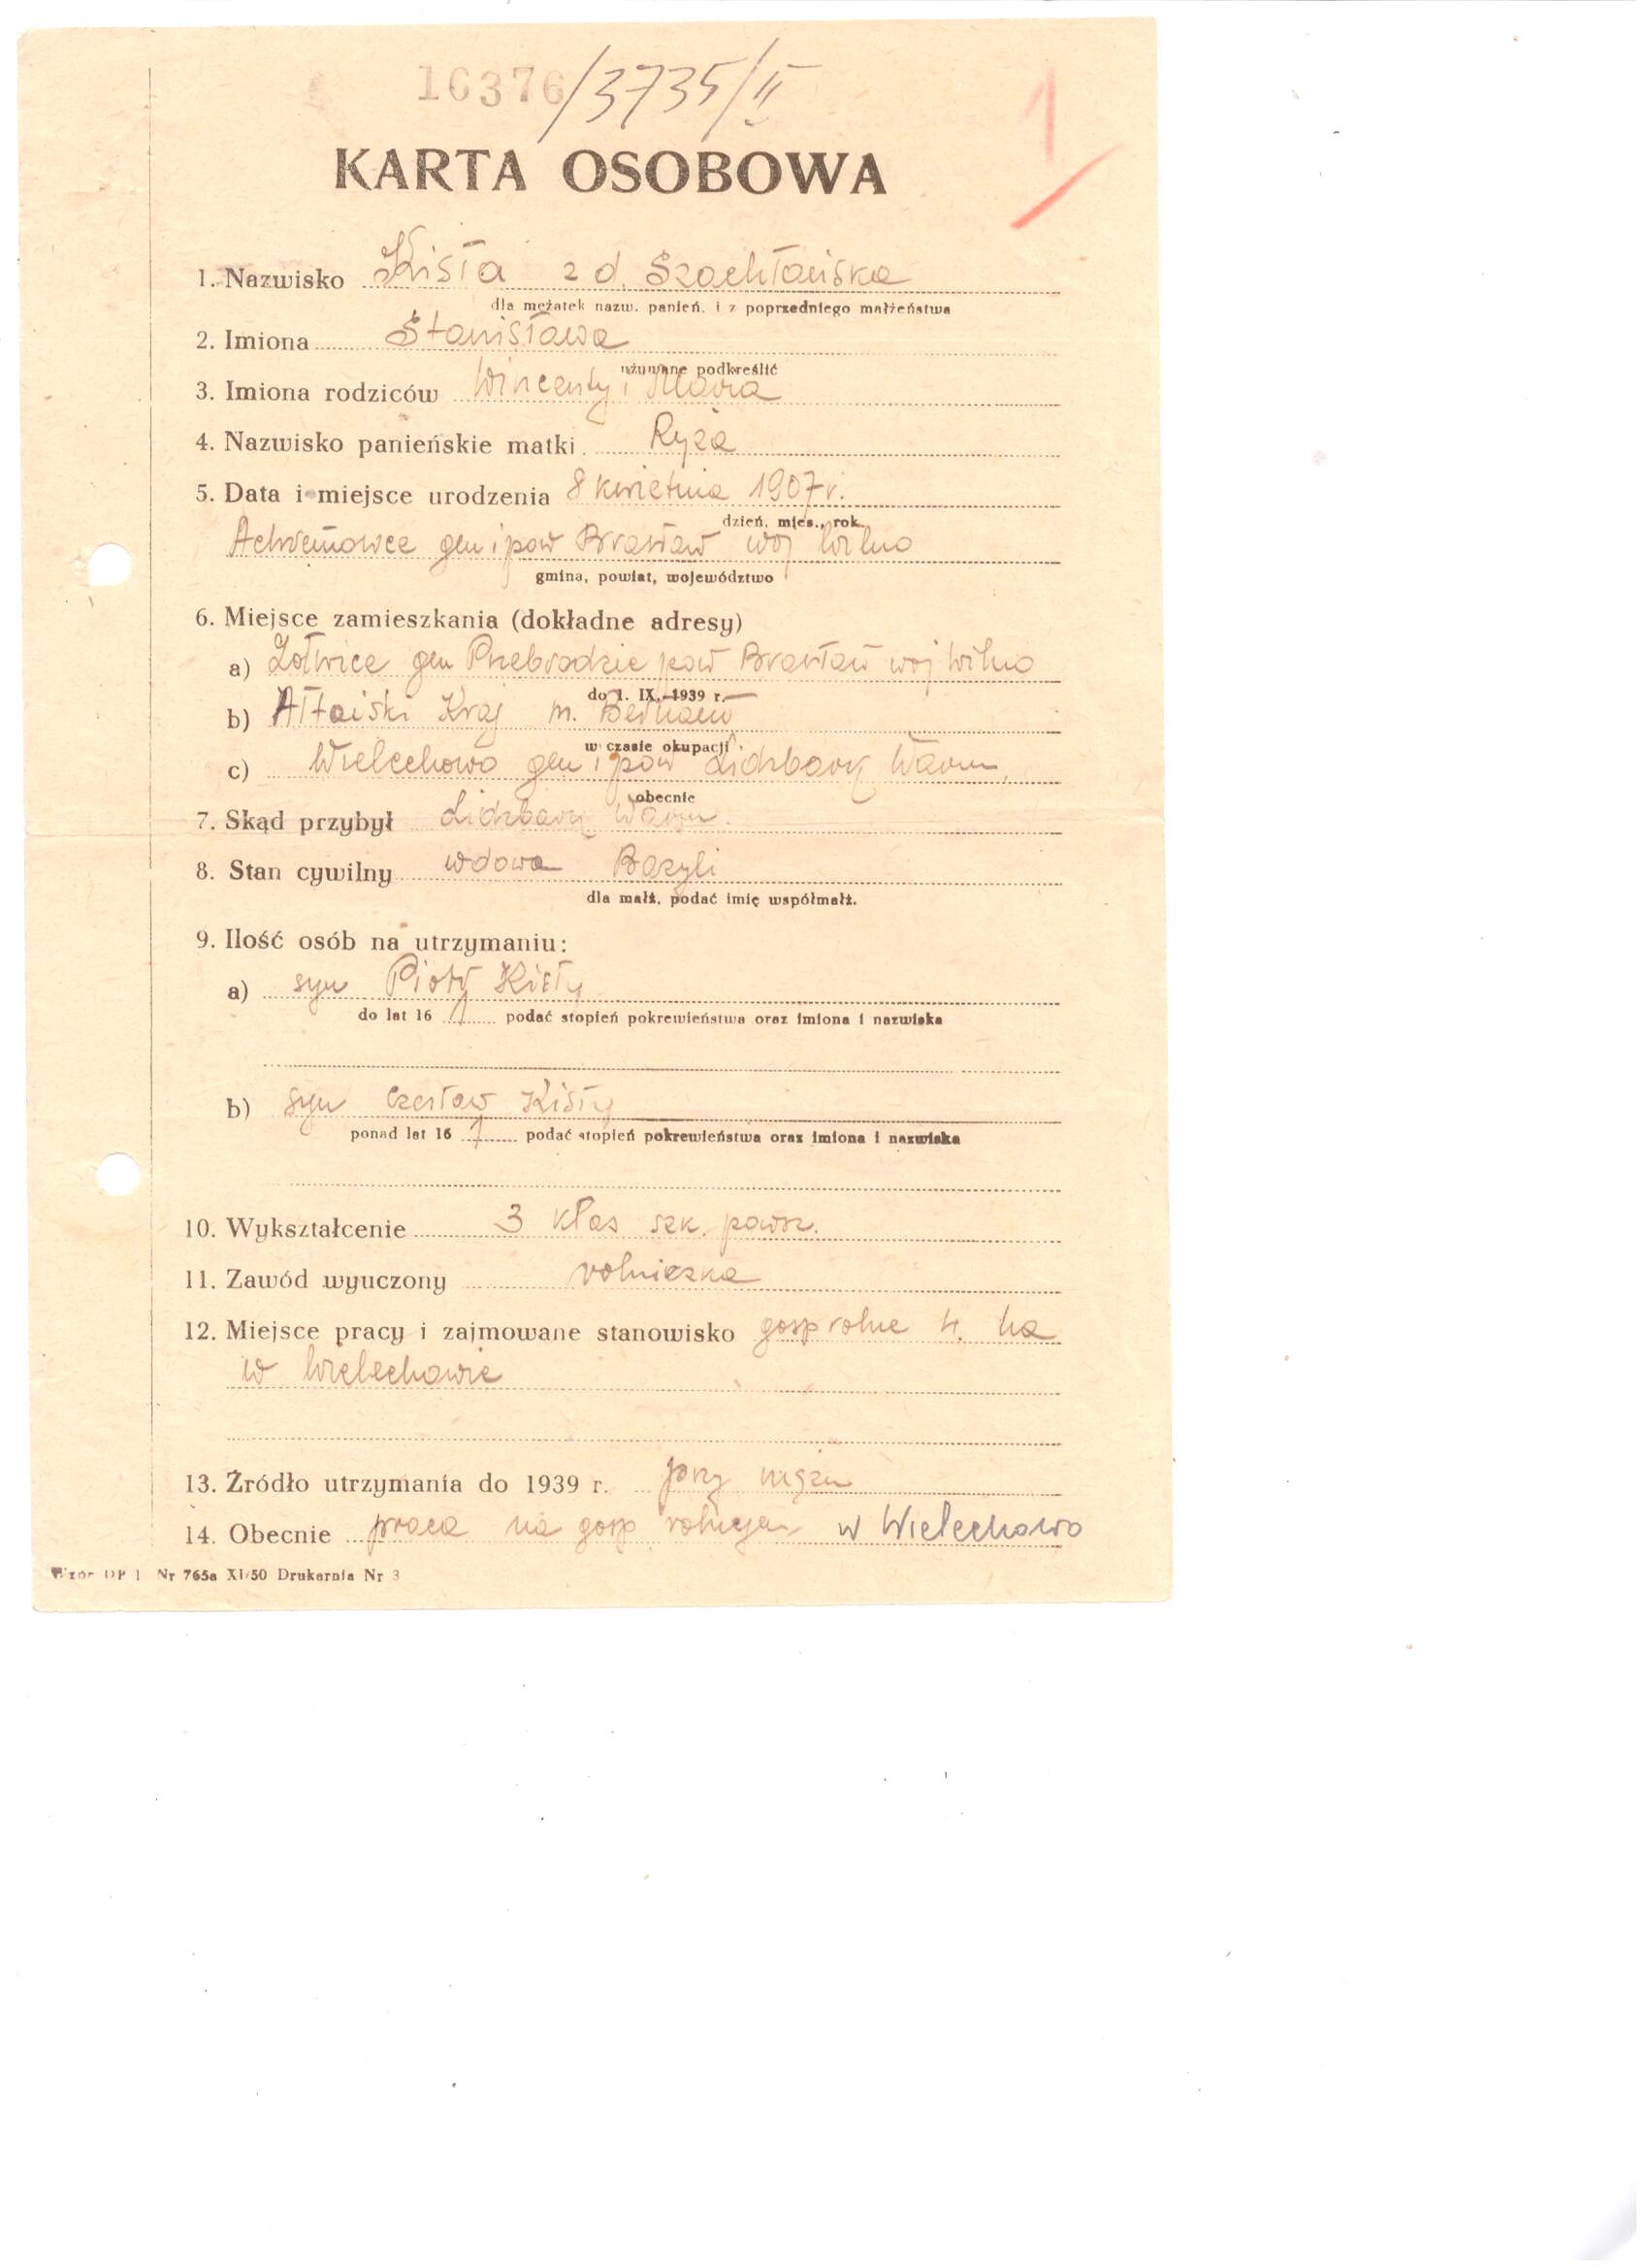 16376/3735/II
1
KARTA OSOBOWA
1. Nazwisko Kisła z d. Szachłańska
dla mężatek nazw. panień. i z poprzedniego małżeństwa
2. Imiona Stanisława
używane podkreślić
3. Imiona rodziców Wincenty i Maria
4. Nazwisko panieńskie matki Ryża
5. Data i miejsce urodzenia 8 kwietnia 1907 r.
dzień, mies., rok
gm i pow Brasław woj Wilno
gmina, powiat, województwo
6. Miejsce zamieszkania (dokładne adresy)
a) gm Przebrodzie pow Brasław woj Wilno
do 1. IX. 1939 r.
b) Ałtaiski Kraj m.
w czasie okupacji
c) Wielechowo gm i pow Lidzbark Warm.
obecnie
7. Skąd przybył Lidzbark Warm.
8. Stan cywilny wdowa Bazyli
dla małż. podać imię współmałż.
9. Ilość osób na utrzymaniu:
a) syn Piotr Kisły
do lat 16 1 podać stopień pokrewieństwa oraz imiona i nazwiska
b) syn Czesław Kisły
ponad lat 16 1 podać stopień pokrewieństwa oraz imiona i nazwiska
10. Wykształcenie 3 kłas szk. powsz.
11. Zawód wyuczony rolniczka
12. Miejsce pracy i zajmowane stanowisko gosp rolne 4. ha
w Wielechowie
13. Źródło utrzymania do 1939 r. przy mężu
14. Obecnie praca na gosp rolnym w Wielechowo
Wzór OP 1 Nr 765a XI/50 Drukarnia Nr 3